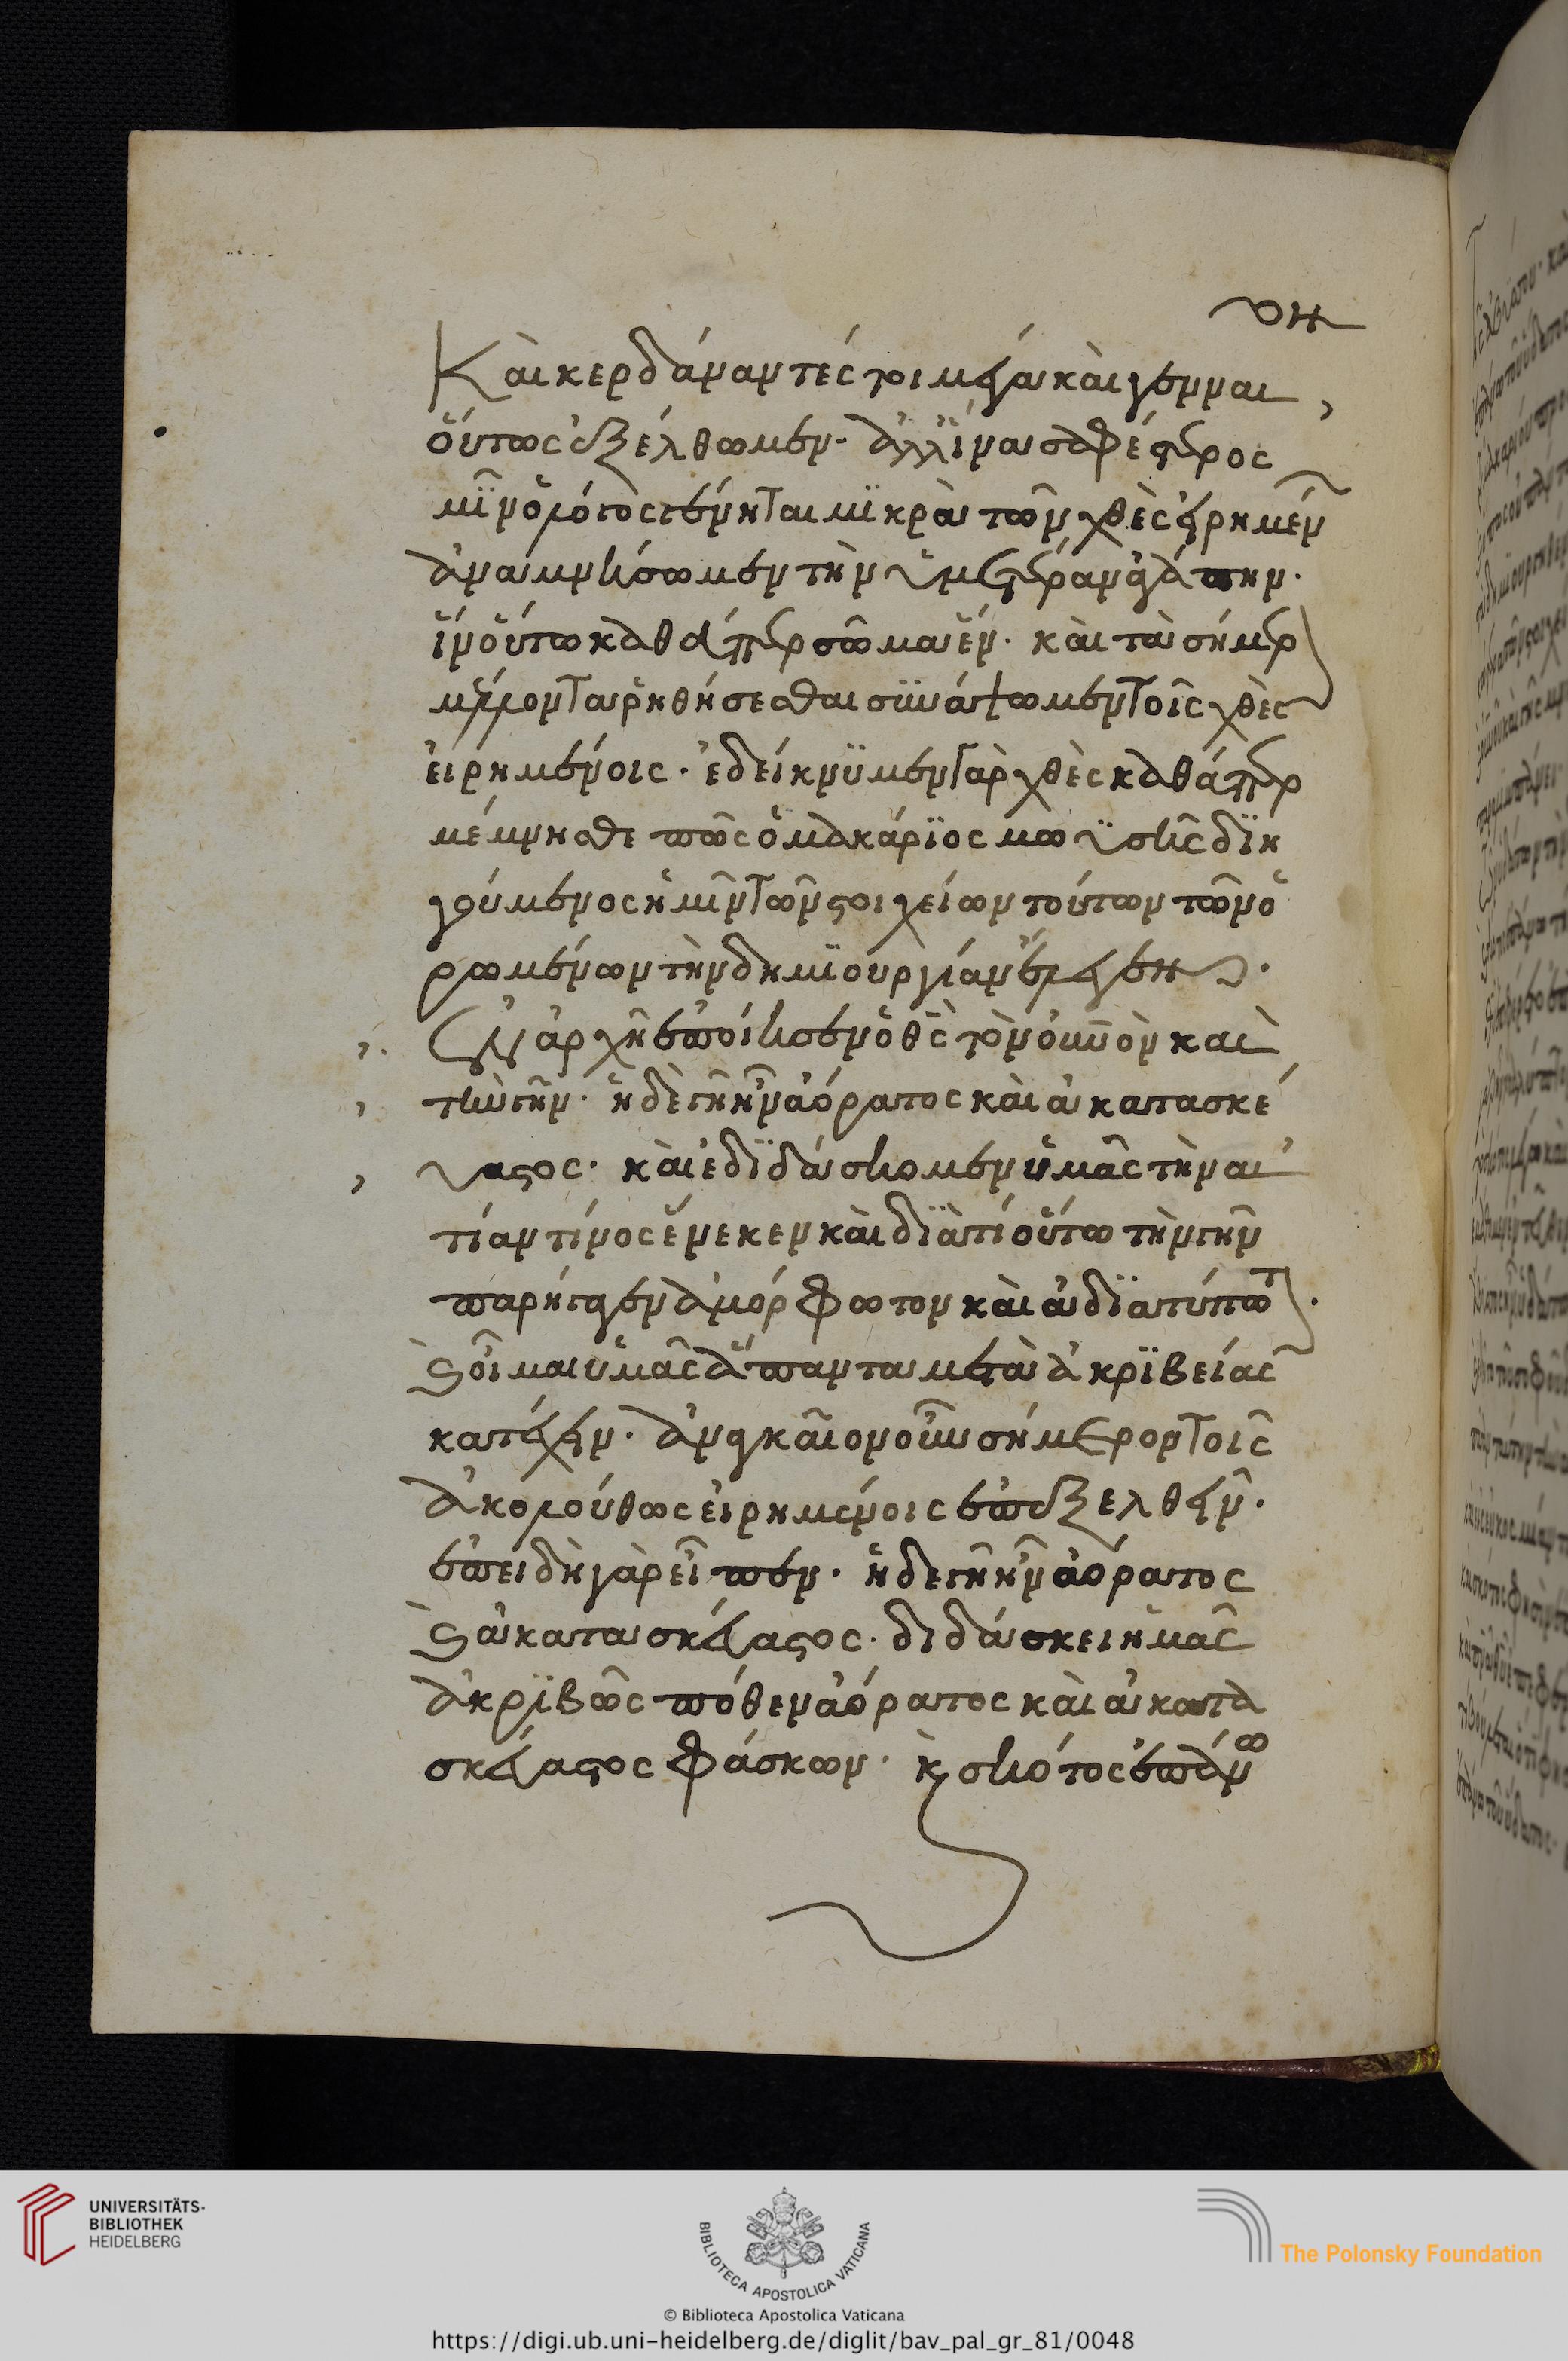 Καὶ κερδάναντές τοι μέγα καὶ γενναι
οὕτως ἐξέλθωμεν· ἀλλ' ἵνα σαφέστερος
μῖν ὁ λόγος γένηται μϊκρὰ τῶν χθὲς εἰρημέν
ἀναμνήσωμεν τὴν ὑμετέραν ἀγάπην·
ἵν' οὕτω καθάπερ σῶμα ἕν· καὶ τὰ σήμερ
μέλλοντα ῥηθήσεσθαι συνάψωμεν τοῖς χθὲς
εἰρημένοις· ἐδείκνϋμεν γὰρ χθὲς καθάπερ
μέμνησθε πῶς ὁ μακάρϊος μωϋσῆς δϊη
γούμενος ἡμῖν τῶν στοιχείων τούτων τῶν ὁ
ρωμένων τὴν δημϊουργίαν ἔλεγεν·
Ἐν ἀρχῆ ἐποίησεν ὁ θς τὸν οὐνὸν καὶ
τὴν γῆν· ἡ δὲ γῆ ἦν ἀόρατος καὶ ἀκατασκέ
υαστος· καὶ ἐδϊδάσκομεν ὑμᾶς τὴν αἰ
τίαν τίνος ἕνεκεν καὶ δϊὰ τί οὕτω τὴν γῆν
παρήγαγεν ἀμόρφωτον καὶ ἀδϊατύπωτ·
ὃ οἶμαι ὑμᾶς ἅπαντα μετὰ ἀκρϊβείας
κατέχειν· ἀναγκαῖον οὖν σήμερον τοῖς
ἀκολούθως εἰρημένοις ἐπεξελθεῖν·
ἐπειδὴ γὰρ εἶπεν· ἡ δε γῆ ἦν ἀόρατος
καὶ ἀκατασκέυαστος· διδάσκει ἡμᾶς
ἀκρϊβῶς πόθεν ἀόρατος καὶ ἀκατα
σκέυαστος φάσκων· κ σκότος ἐπάνω